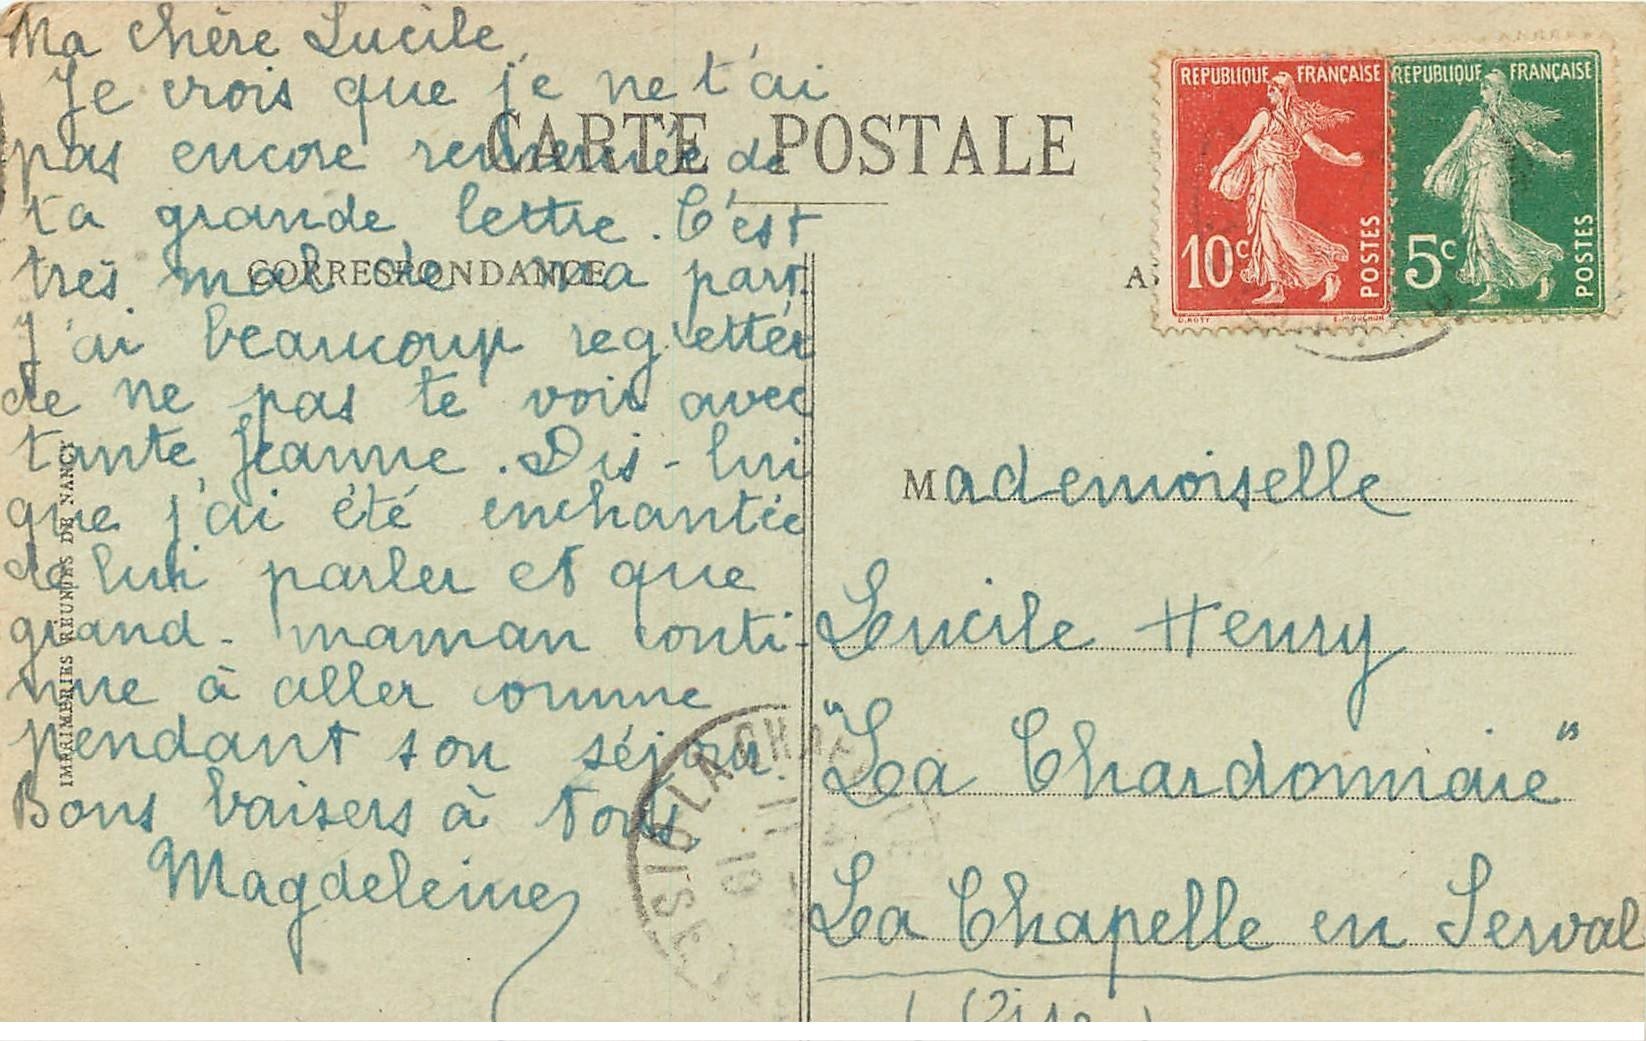 Ma chère Lucile,
Je crois que je ne t'ai
pas encore remerciée de
ta grande lettre. C'est
très mal de ma part.
J'ai beaucoup regretter
de ne pas te voir avec
tante Jeanne. Dis-lui
que j'ai été enchantée
de lui parler et que
grand-maman conti-
nue à aller comme
pendant son séjour.
Bons baisers à tous
Magdeleine
CARTE POSTALE
CORRESPONDANCE
A
IMPRIMERIES REUNIES DE NANCY
REPUBLIQUE FRANÇAISE
10c
POSTES
O.ROTY
E.MOUCHON
REPUBLIQUE FRANÇAISE
5c
POSTES
Mademoiselle
Lucile Henry
"La Chardonnaie"
La Chapelle en Serval
(Oise)
LA CHAPELLE
OISE